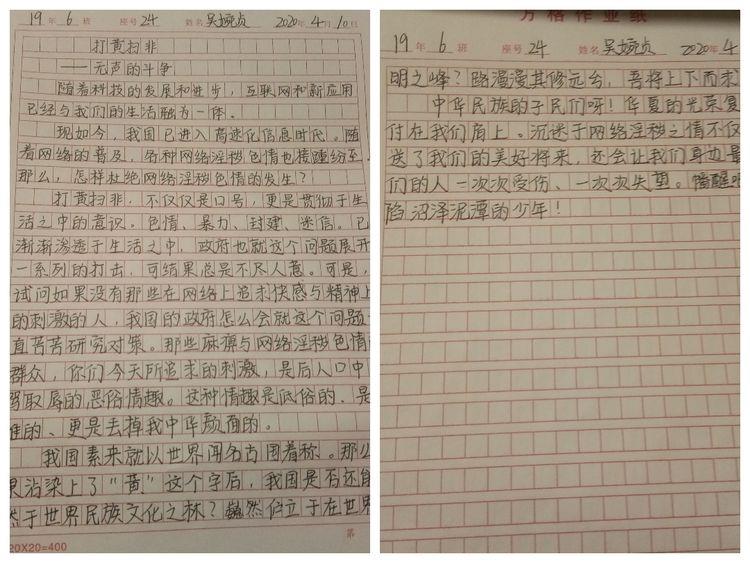 19 年 6 班 座号 24 姓名 吴婉贞 2020年4月10日
打黄扫非
——无声的斗争
随着科技的发展和进步，互联网和新应用
已经与我们的生活融为一体。
现如今，我国已进入高速化信息时代。随
着网络的普及，各种网络淫秽色情也接踵纷至
那么，怎样杜绝网络淫秽色情的发生？
打黄扫非，不仅仅是口号，更是贯彻于生
活之中的意识。色情、暴力、封建、迷信。已
渐渐渗透于生活之中，政府也就这个问题展开
一系列的打击，可结果总是不尽人意。可是，
试问如果没有那些在网络上追求快感与精神上
的刺激的人，我国的政府怎么会就这个问题一
直苦苦研究对策。那些麻痹与网络淫秽色情的
群众，你们今天所追求的刺激，是后人口中
骂取辱的恶俗情趣。这种情趣是低俗的、是
准的、更是丢掉我中华颜面的。
我国素来就以世界闻名古国着称。那么
果沾染上了“黄”这个字后，我国是否还能
然于世界民族文化之林？巍然伫立于在世界
20X20=400
第
方格作业纸
19 年 6 班 座号 24 姓名 吴婉贞 2020年4
明之峰？路漫漫其修远兮，吾将上下而求
中华民族的子民们呀！华夏的光荣复
付在我们肩上。沉迷于网络淫秽之情不仅
送了我们的美好将来，还会让我们身边最
们的人一次次受伤、一次次失望。醒醒吧
陷沼泽泥潭的少年！